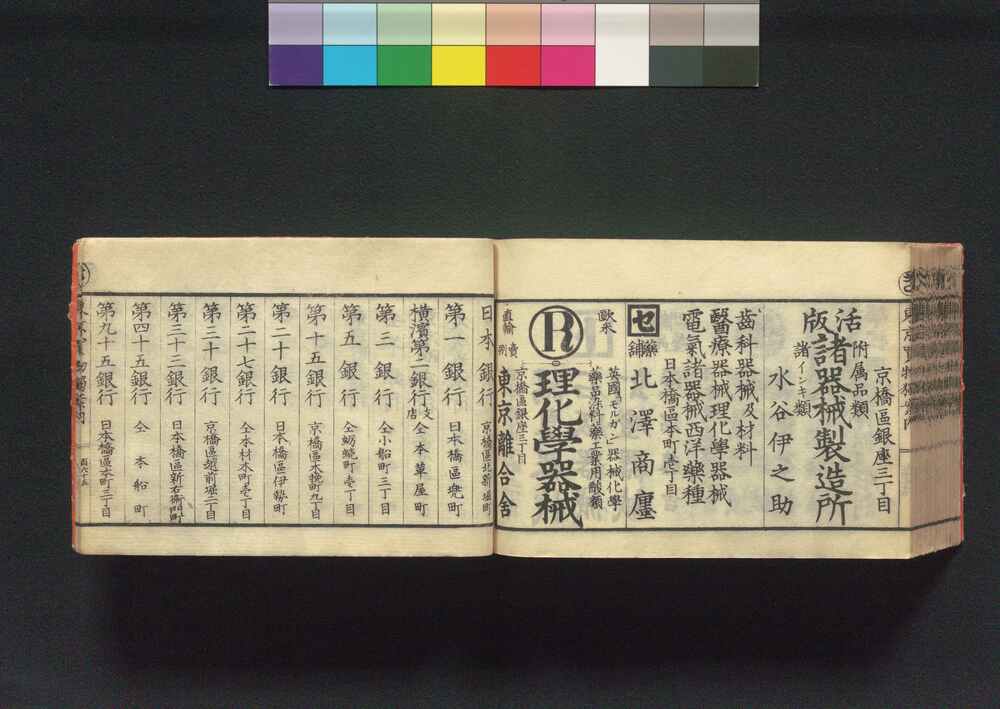 京橋區銀座三丁目
活版諸器械製造所
附属品類
諸インキ類
水谷伊之助
齒科器械及材料
醫療器械理化學器械
電氣諸器械西洋藥種
日本橋區本町壱丁目
セ
藥舗
北澤商廛
歐米
英國モルガン器械化學
藥品染料藥工業用酸類
R
理化學器械
京橋區銀座三丁目
直輸
東京離合舎
日本銀行 京橋區北新堀町
第一銀行 日本橋區兜町
横濱第二銀行支店 仝本草屋町
第三銀行 仝小船町三丁目
第五銀行 仝蛎売町壱丁目
第十五銀行 京橋區木挽町九丁目
第二十銀行 日本橋區伊勢町
第二十七銀行 仝本材木町壱丁目
第三十銀行 京橋區越前堀二丁目
第三十三銀行 日本橋區新右衛門町
第四十五銀行 仝本船町
第九十五銀行 日本橋區本町三丁目